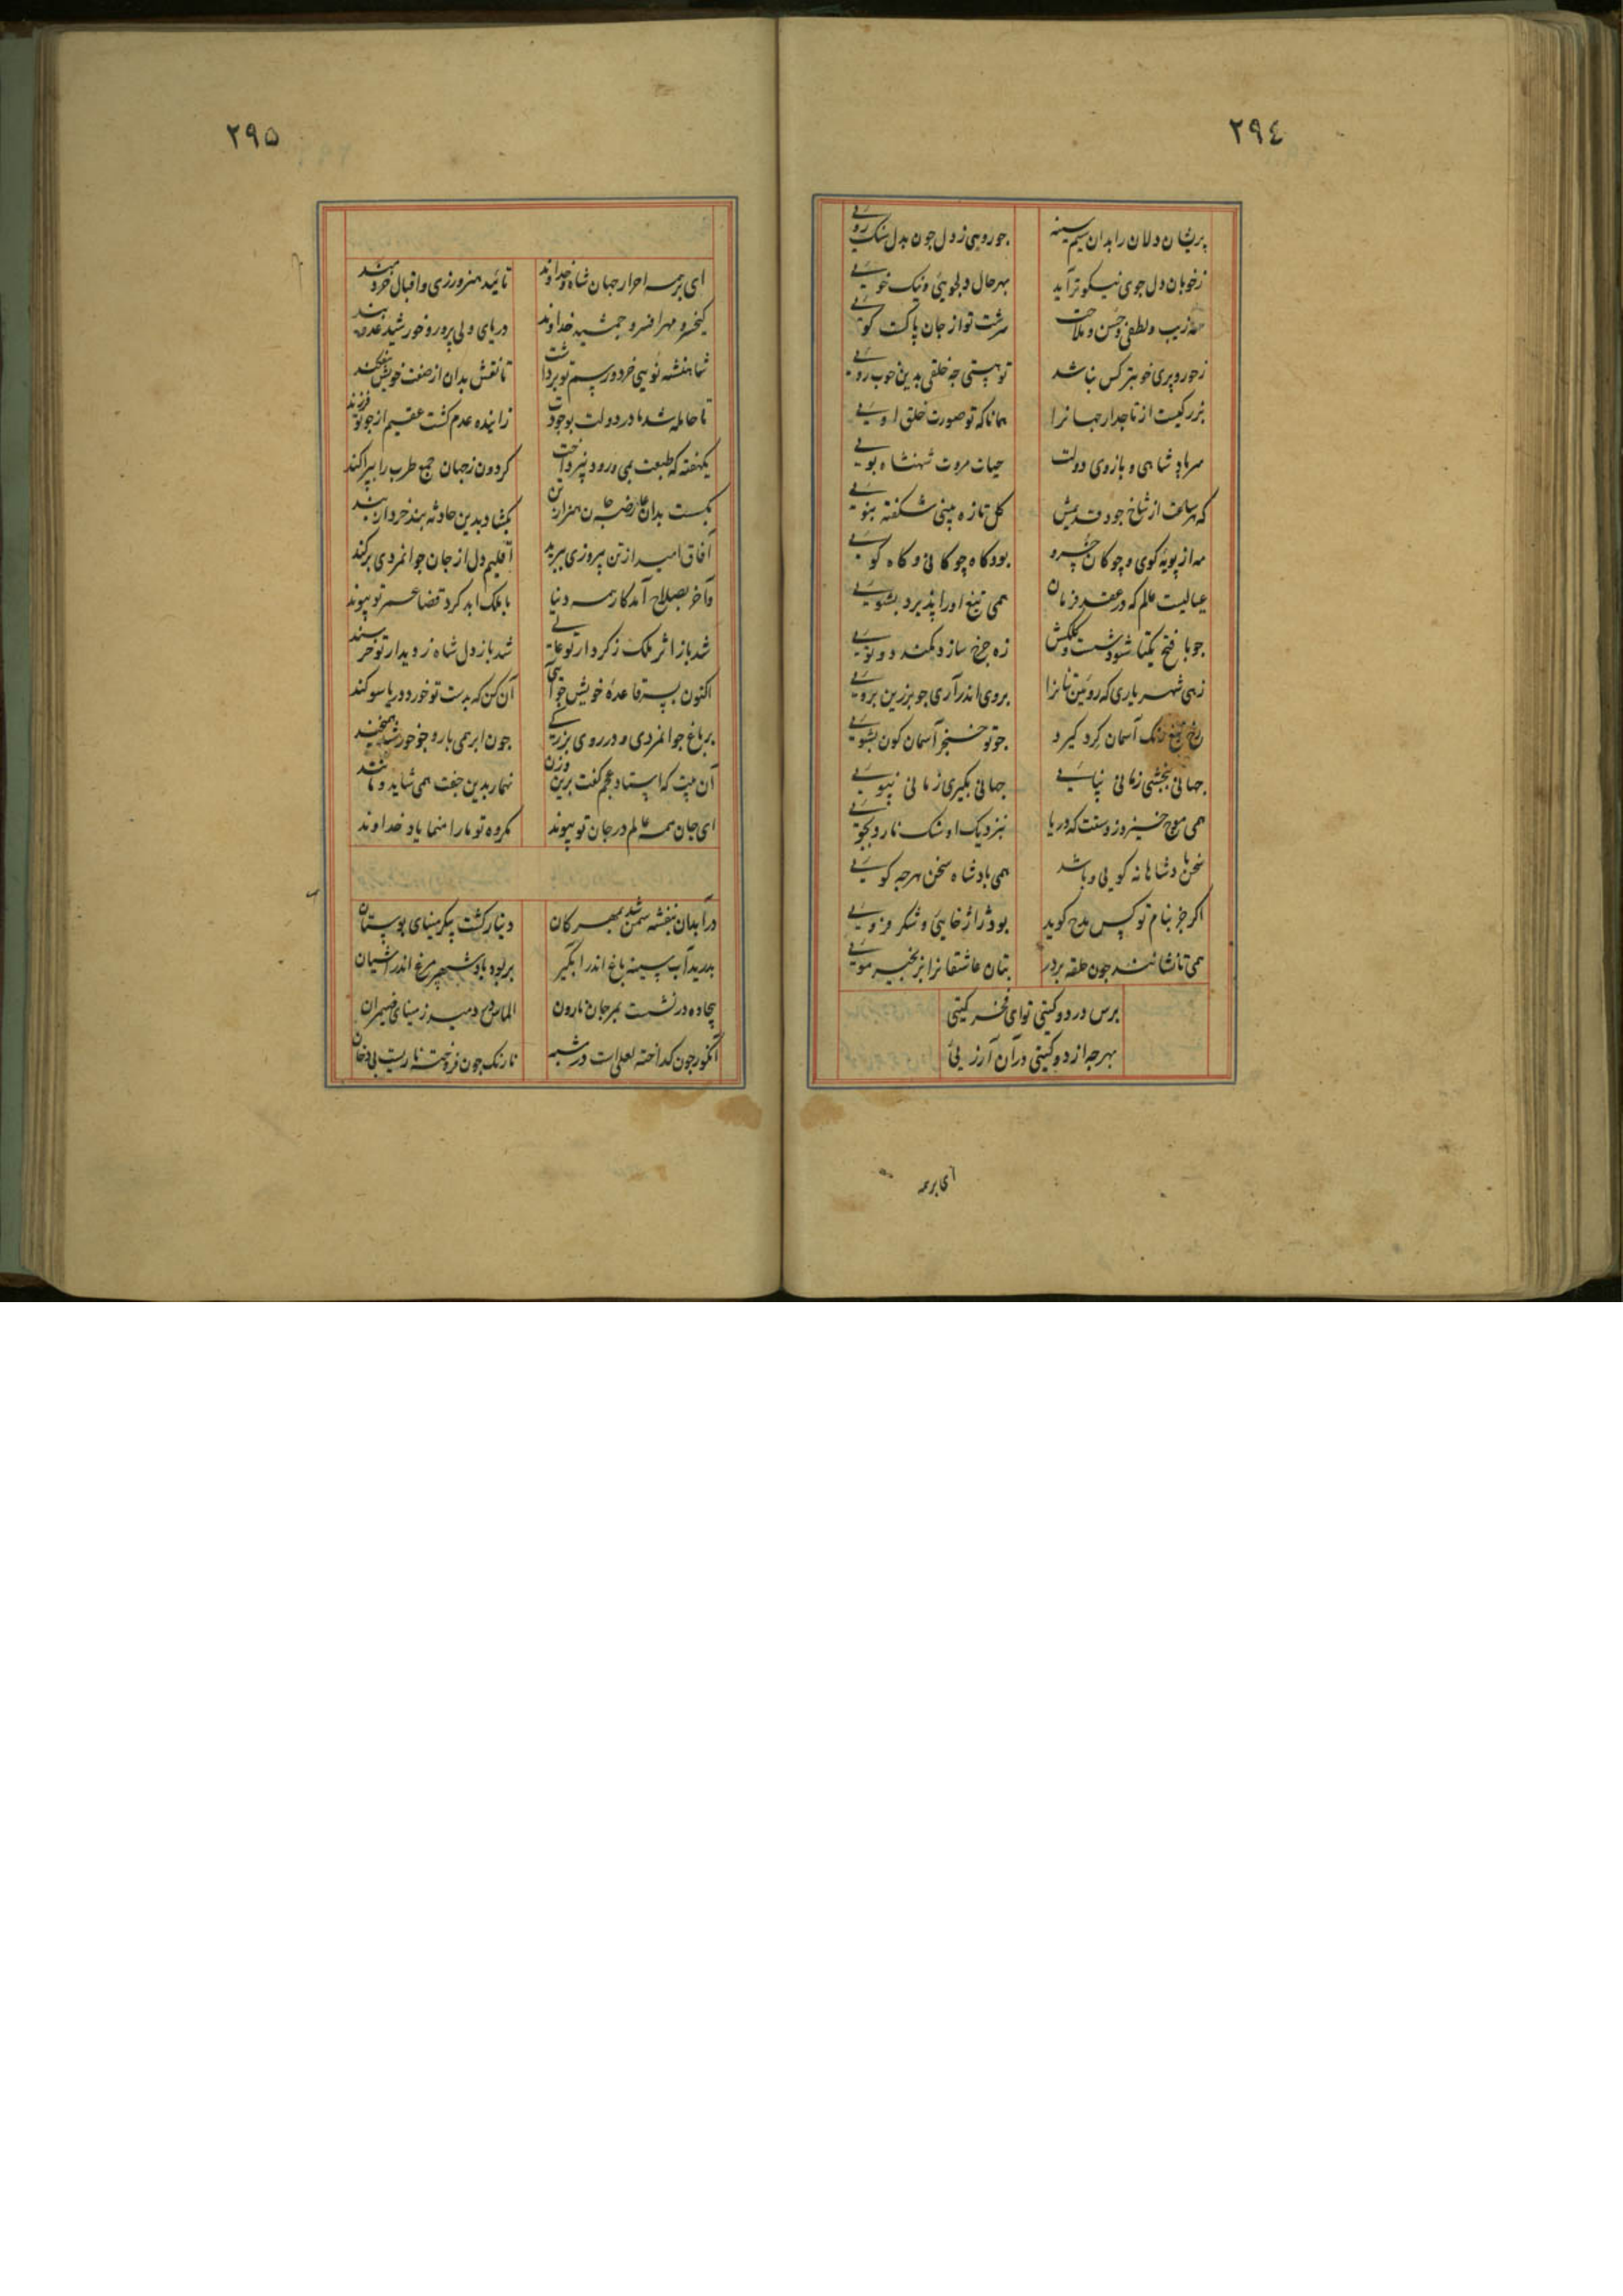 ٢٩٤
پریشان دلان را بدان سیم سینه جو روهی ز دل جون بدل سنک رویی
ز خوبان دل جوی نیکوتر آید بهر حال دلجویئی و نیک خویی
زیب و لطف و حسن و ملاحت سرشت تو از جان پاکست کویی
ز حور و پری خوبتر کس نباشد تو هستی چه خلقی بدین خوب رویی
بزرکیست از تاجدار جهانرا همانا که تو صورت خلق اویی
سر پادشاهی و بازوی دولت حیات مروت شهنشاه بویی
که هر ساعت از شاخ جود قدیمش کل تازه بینی شکفته بنویی
مه از پویه کوی و چوکان خسرو بود کاه چوکانی و کاه کویی
عیالیست علم که در عقد فرمان همی تیغ او را پذیرد بشویی
جو با فتح یکتا شود شست کلکش زه جرخ سازد کمند دوتویی
زهی شهریاری که روئین تنانرا بروی اندر آری جو برزین برویی
رخ تیغ آسمان کرد کیرد جو تو خنجر آسمان کون بشویی
جهانی ببخشی زمانی نپایی جهانی بکیری زمانی نپویی
همی موج خیزد ز دستت که دریا بنزدیک او شنک نارد بجویی
سخن پادشاهانه کویی و باشد همی پادشاه سخن هرجه کویی
اکر جز بنام تو کس مدح کوید بود ژاژخایئی و شکر فزویی
همی تا نشانند جون حلقه بر در بتان عاشقانرا بزنجیر مویی
برس در دو کیتی تو ای فخر کیتی
بهر جه از دو کیتی در آن آرزویی
ای بر همه
٢٩٥
ای بر همه احرار جهان شاه و خداوند تائید هنرورزی و اقبال خردمند
کیخسرو مهر افسر و جمشید خداوند دریای ولی پرور و خورشید عدو بند
شاهنشه نوییی خرد و رسم تو برداشت تا نقش بدان از صفت خویش بیفکند
تا حامله شد مادر دولت بوجودت زاینده عدم کشت عقیم از جو تو فرزند
یکهفته که طبعت بمی و رود نپرداخت کردون ز جهان جمع طرب را بپراکند
بکسست بدان عارضه جان ز هزاران تن بکشاد بدین حادثه بند خرد از بند
آفاق امید از تن پیروزی ببرید اقلیم دل از جان جوانمردی برکند
و آخر بصلاح آمد کار همه دنیا با ملک ابد کرد قضا عمر تو پیوند
شد باز اثر ملک ز کردار تو عالی شد باز دل شاه ز دیدار تو خرسند
اکنون بسر قاعدهٔ خویش خوآنی آن کن که بدست تو خورد دریا سوکند
بر باغ جوانمردی و در روی بزرکی جون ابر همی بار و جو خورشید همیخند
آن بیت که استاد عجم کفت برین وزن بدین جفت همی شاید و مانند
ای جان همه عالم در جان تو پیوند مکروه تو ما را منمایاد خداوند
در آبدان بنفشه سمن شد بمهرکان دینار کشت پیکر مینای بوستان
بدرید آب سینه باغ اندر آبکیر بربود باد شهپر مرغ اندر آشیان
بیجاده در نشست بمرجان نارون الماس دم دمید ز مینای ضیمران
انکور جون کداخته لعلی است در شبه نارنک جون فروخته ناریست بی دخان